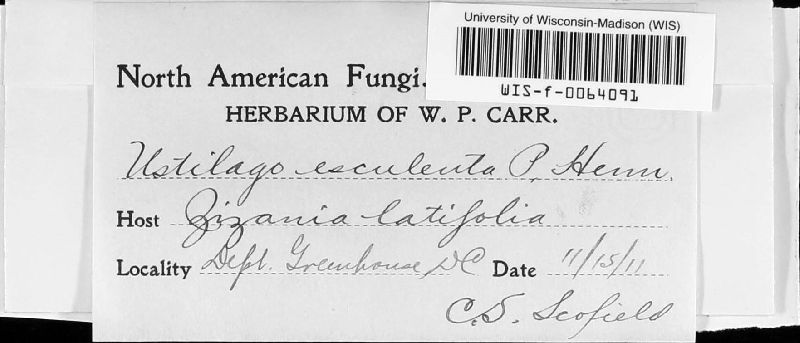 University of Wisconsin-Madison (WIS)
WIS-f-0064091
North American Fungi.
HERBARIUM OF W. P. CARR.
Ustilago esculenta P. Henn.
Host Zizania latifolia
Locality Dept. Greenhouse DC Date 11/15/11
C.S. Scofield